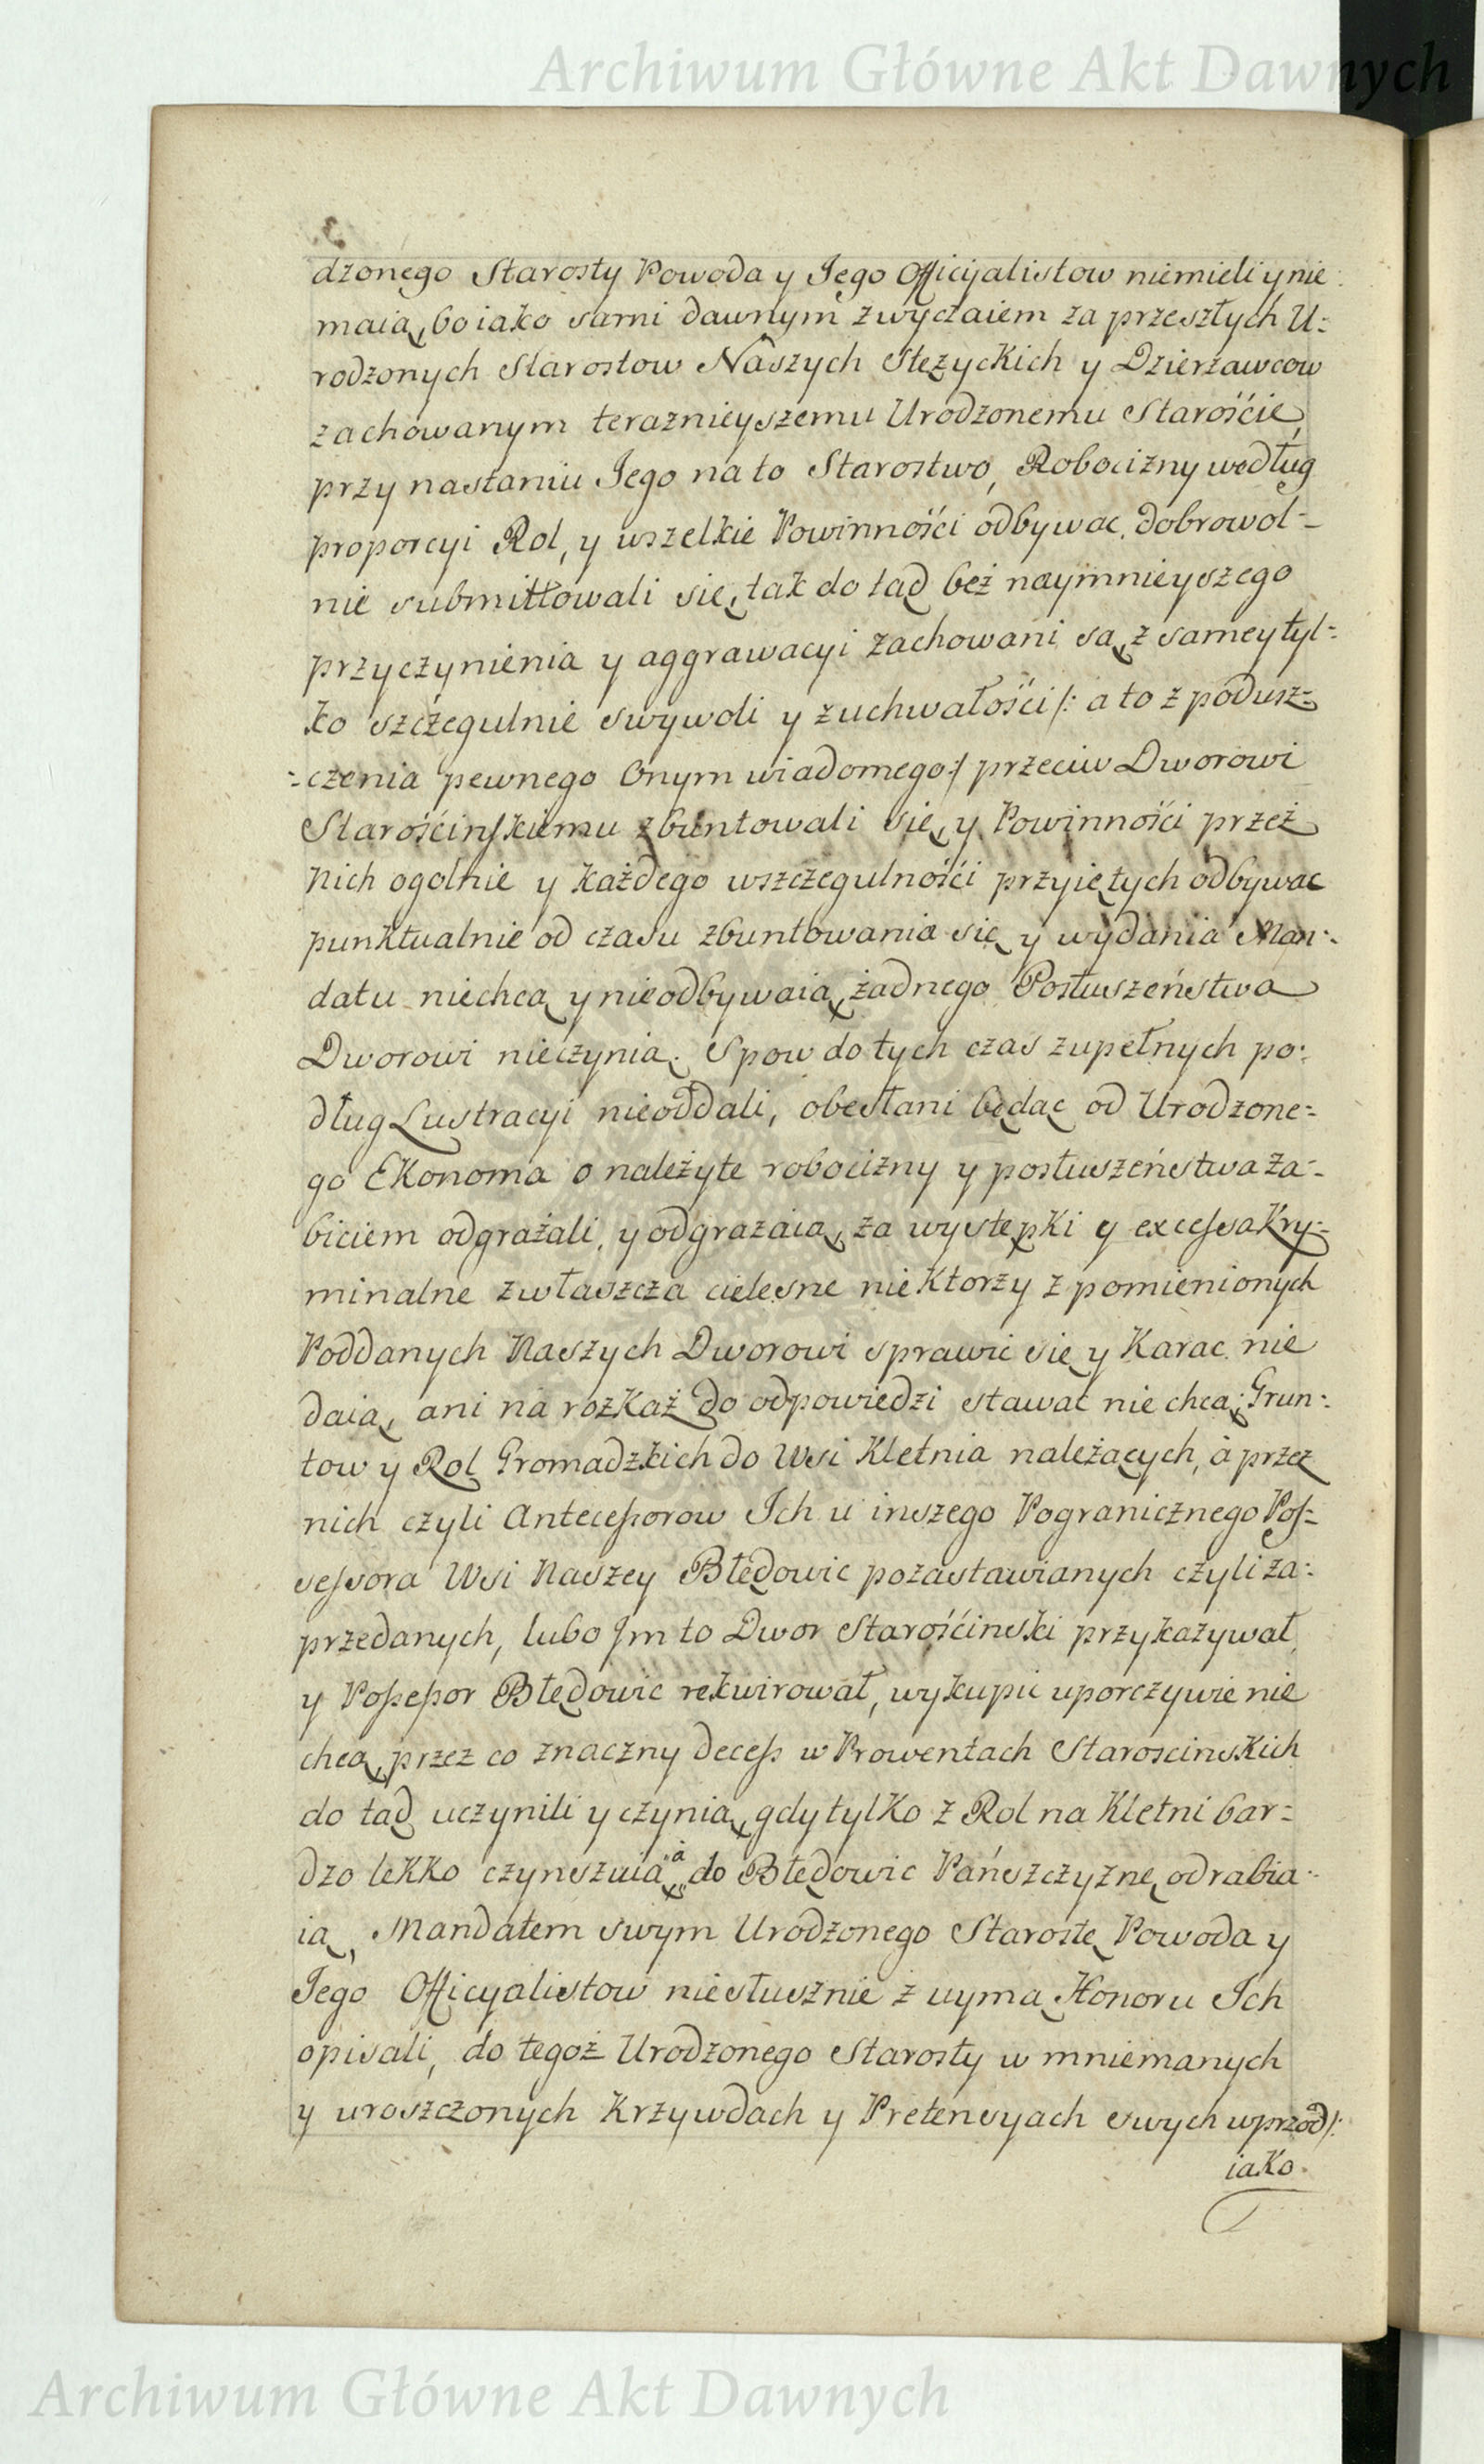 Archiwum Główne Akt Dawnych
dzonego Starosty Powoda y Jego Officyalistow niemieli y nie
maią, bo iako sami dawnym zwyczaiem za przeszłych U-
rodzonych Starostow Naszych Stężyckich y Dzierżawcow
zachowanym teraznieyszemu Urodzonemu Starośćie,
przy nastaniu Jego na to Starostwo, Robocizny według
proporcyi Rol, y wszelkie Powinnośći odbywac dobrowol-
nie submittowali się, tak do tąd bez naymnieyszego
przyczynienia y aggrawacyi zachowani są, z samey tyl-
ko szczegulnie swywoli y zuchwałośći /: a to z podusz-
-czenia pewnego Onym wiadomego :/ przeciw Dworowi
Starośćinskiemu zbuntowali się, y Powinnośći przez
Nich ogolnie y każdego wszczegulnośći przyiętych odbywac
punktualnie od czasu zbuntowania się y wydania Man-
datu niechcą y nieodbywaią, żadnego Posłuszeństwa
Dworowi nieczynią. Spow do tych czas zupełnych po-
dług Lustracyi nieoddali, obesłani będąc od Urodzone-
go Ekonoma o należyte robocizny y posłuszeństwa za-
biciem odgrażali, y odgrażaią, za występki y excessa Kry-
minalne zwłaszcza cielesne niektorzy z pomienionych
Poddanych Naszych Dworowi sprawic się y Karac nie
daią, ani na rozkaz do odpowiedzi stawac nie chcą; Grun-
tow y Rol Gromadzkich do Wsi Kletnia należących, à przez
nich czyli Antecessorow Ich u inszego Pogranicznego Pos-
sessora Wsi Naszey Błędowic pozastawianych czyli za-
przedanych, lubo Im to Dwor Starośćinski przykazywał,
y Possessor Błędowic rekwirował, wykupic uporczywie nie
chcą, przez co znaczny decess w Prowentach Staroscinskich
do tąd uczynili y czynią, gdy tylko z Rol na Kletni bar-
dzo lekko czynszuią, à do Błędowic Pańszczyznę odrabia-
ią, Mandatem swym Urodzonego Starostę Powoda y
Jego Officyalistow niesłusznie z uymą Honoru Ich
opisali, do tegoż Urodzonego Starosty w mniemanych
y uroszczonych Krzywdach y Pretensyach swych wprzod /:
iako
Archiwum Główne Akt Dawnych